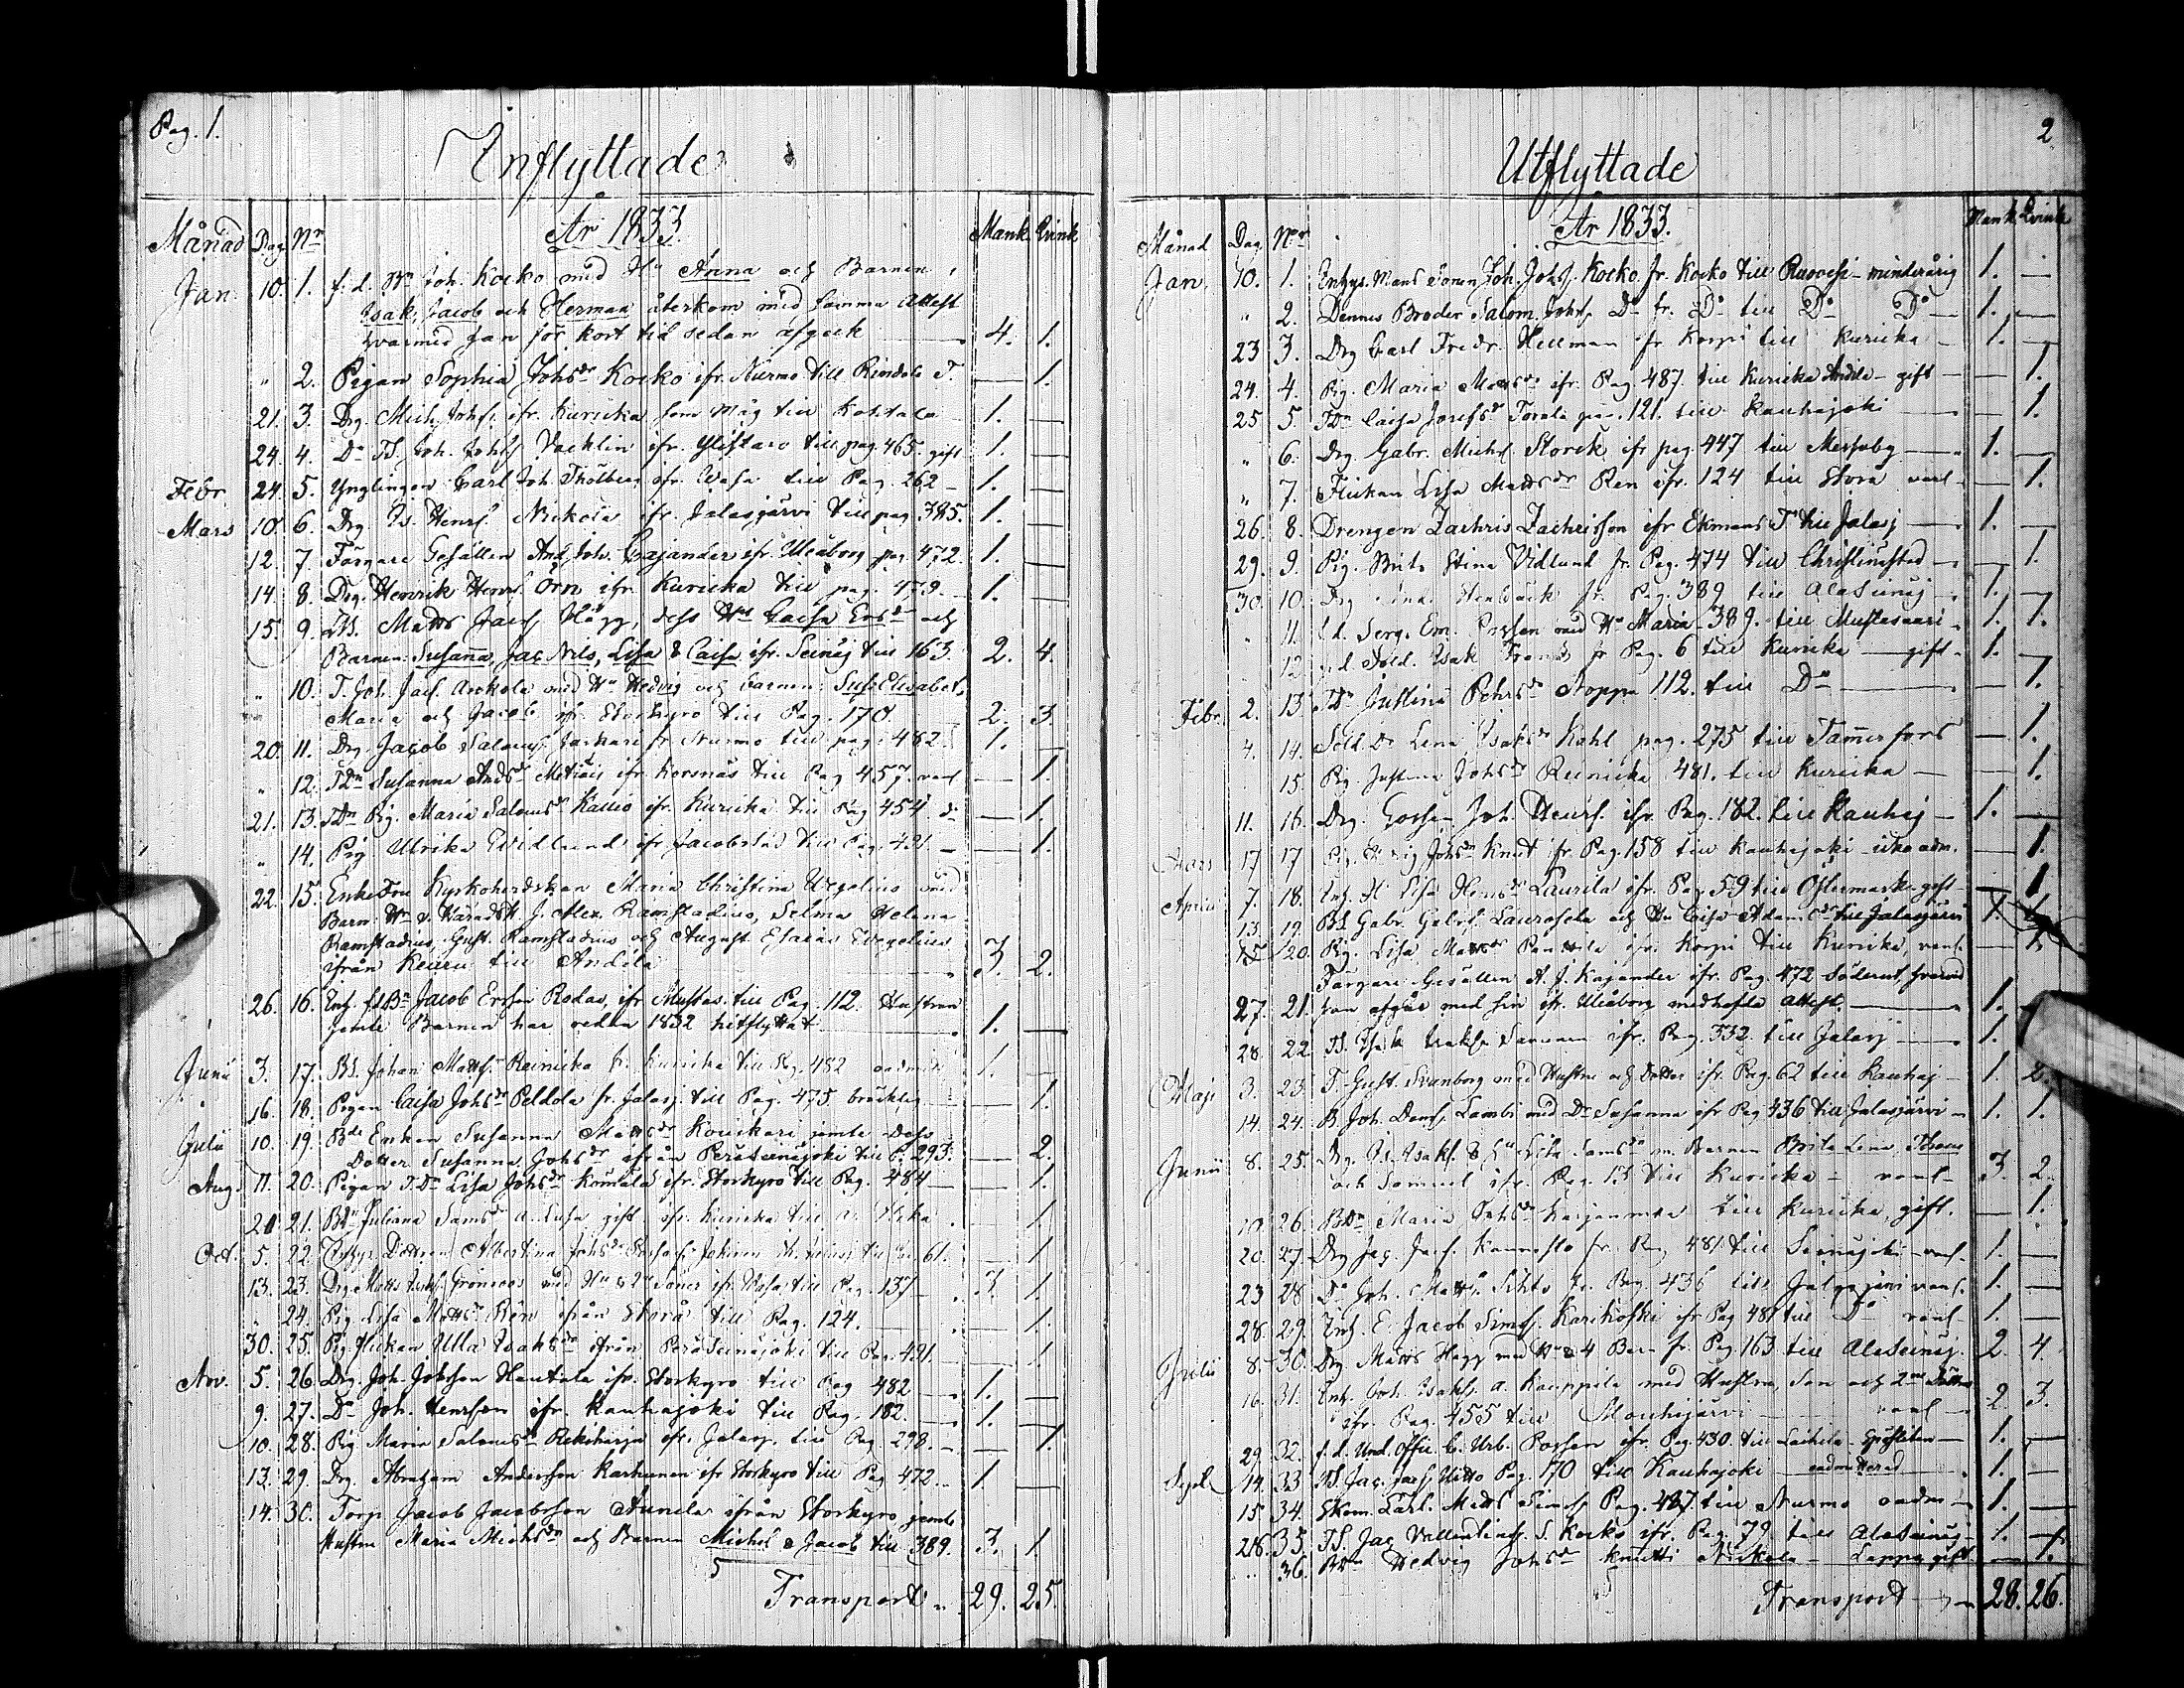 Pag. 1.
Inflyttade
Månad Dag Nr År 1833. Mank. Qvink
Jan. 10. 1. f. d. Bn Joh. Kocko med Hu Anna och Barnen,
Isak, Jacob och Herman återkom med samma attest
hvarmed han för kort tid sedan afgick 4. 1.
" 2. Pigan Sophia Johsdr Kocko ifr. Nurmo till Rindala T. — 1.
21. 3. Drg. Mich. Johss. ifr. Kuricka som måg till Kohtala 1. —
24. 4. Do TS. Joh. Johss. Vacklin ifr. Ylistaro till pag. 465. gift 1. —
Febr. 24. 5. Ynglingen Carl Joh. Thölberg ifr. Wasa till Pag. 262 — 1. —
Mars 10. 6. Drg. Is. Henrs. Nickola ifr. Jalasjärvi till pag. 385. 1. —
12. 7. Färgare Gesällen And. Joh. Cajander ifr. Uleåborg pag. 472. 1. —
14. 8. Drg. Henrik Henrs. Örn ifr. Kuricka till pag. 479. — 1. —
15. 9. Matts Jacs. Hägg, dess Hu Caisa Ersdr och
Barnen: Susanna, Jac. Nils, Lisa & Caisa ifr. Seinäj. till 163. 2. 4.
" 10. T. Joh. Jacs. Ankola med Hu Hedvig och barnen: Sus. Elisabet,
Maria och Jacob ifr. Storkyro till Pag. 170. 2. 3.
20. 11. Drg. Jacob Saloms. Jaskari fr. Nurmo till pag. 482. 1. —
" 12. TDn Susanna Andsdr Metiäis ifr. Korsnäs till Pag. 457. — 1.
21. 13. TDn Pig. Maria Salomsdr Kallio ifr. Kuricka till Pag. 454. do — 1.
" 14. Pig. Ulrika Widlund ifr. Jacobstad till Pag. 491. — — 1.
22. 15. Enkefru Kyrkoherdskan Maria Christina Wegelius med
Barn: J. Alex. Ramstadius, Selma Helena
Ramstadius, Gust. Ramstadius och August Esaias Wegelius
ifrån Keuru till Andila 3. 2.
26. 16. Jacob Ersson Rodas, ifr. Mustas. till Pag. 112. Hustrun
jemte Barnen har redan 1832 hitflyttat 1. —
Junii 3. 17. Bs. Johan Matts. Reinicka fr. Kuricka till Pag. 482 1. —
16. 18. Pigan Caisa Johsdr Peldola fr. Jalasj. till Pag. 475 bräcklig — 1.
Julii 10. 19. Enkan Susanna Mattsdr Kouckari jemte dess
Dotter Susanna Johsdr ifrån Peräseinäjoki till P. 293. — 2.
Aug. 11. 20. Pigan T.Dr Lisa Johsdr Komula ifr. Storkyro till Pag. 484 — — 1.
20 21. Juliana Samsdr gift ifr. Kuricka till — 1.
Oct. 5. 22. Dottren Albertina Johsdr till 61. — 1.
13. 23. Drg. Matts Grönroos med Hu & 2 Söner ifr. Wasa till Pag. 137 — 3. 1.
" 24. Pig. Lisa Mattsdr Ren ifrån Storå till Pag. 124. — 1.
30. 25. Pig flickan Ulla Isaksdr ifrån Peräseinäjoki till Pag. 491. — 1.
Nov. 5. 26. Drg. Joh. Johsson Hautala ifr. Storkyro till Pag 482 1. —
9. 27. Do Joh. Henrsson ifr. Kauhajoki till Pag. 182. 1. —
10. 28. Pig Maria Salomsdr ifr. Jalasj. till Pag. 298. — — 1.
13. 29. Drg. Abraham Andersson Karhunen ifr Storkyro till Pag 472. 1. —
14. 30. Torp. Jacob Jacobsson Aunela ifrån Storkyro jemte
Hustru Maria Michsdr och Barnen Michel & Jacob till 389. 3. 1.
Transport 29. 25.
2
Utflyttade
Månad Dag Nr År 1833. Mank Qvink
Jan. 10. 1. Sonen Joh. Johss. Kocko fr. Kocko till Ruovesi — minderårig 1. —
" 2. Dennes Broder Salom. Johss. Do fr. Do till Do Do 1. —
23 3. Drg Carl Fredr. Hellman fr Korpi till Kuricka 1. —
24. 4. Pig. Maria Mattsdr ifr. Pag 487. till Kuricka Andila — gift — 1.
25 5. TDn Caisa Josefsdr Torala pag. 121. till Kauhajoki — 1.
" 6. Drg. Gabr. Michs. Storck ifr pag. 447 till Messuby 1. —
" 7. Flickan Lisa Mattsdr Ren ifr. 124 till Stora — 1.
26. 8. Drengen Zachris Zachrisson ifr Ekmans T. till Jalasj 1. —
29. 9. Pig. Brita Stina Vidlund fr. Pag. 474 till Christinestad — 1.
30. 10. Drg Stenback fr. Pag. 389 till Alaseinäj. 1.
" 11. f.d. Serg. Em. Possen med Hu Maria 389. till Mustasaari 1. 1.
12. f.d. Sold. Isak fr Pag. 6 till Kuricka — gift 1.
Febr. 2. 13 TDr Justina Pehrsdr Noppa 112. till Do — 1.
4. 14. Sold. Dr Lena Isaksdr Kahl pag. 275 till Tammerfors — 1.
15. Pig. Justina Johsdr Reinicka 481. till Kuricka — 1.
11. 16. Drg. Gossen Joh. Henrs. ifr. Pag. 182. till Kauhaj — 1.
Mars 17 17 Pig. Johsdr Knut ifr. Pag. 158 till Kauhajoki — icke adm. — 1.
April 7. 18. Lisa Henrsdr Laurila ifr. Pag 59 till Östermark gift — 1
13. 19. Bs. Gabr. Gabrs. Laurosela och Hu Caisa Adamsdr till Jalasjärvi 1. 1.
15 20. Pig. Lisa Mattsdr ifr. Korpi till Kuricka, — 1.
Färgare Gesällen A. J. Kajander ifr. Pag. 472 Söderut, hvarvid
27. 21. han afgår med sin ifr. Uleåborg medhafda attest. 1.
28. 22 TS. Isak Isaks. ifr. Pag. 332. till Jalasj 1.
Maji 3. 23. T. Gust. Svanborg med Hustru och Dotter ifr. Pag. 62 till Kauhaj — 1. 2.
14. 24. B. Joh. Dans. Lambi med Dr Susanna ifr Pag 436 till Jalasjärvi 1. 1.
Junii 8. 25. Drg. Is. Isaks. & Hu Lisa Samsdr m. Barnen Brita Lena, Thomas
och Samuel ifr. Pag. 13 till Kuricka — 3. 2.
10 26. Maria Johsdr till Kuricka, gift. — 1.
20. 27. Drg Jac. Jacs. Kannosto fr. Pag 481. till Seinäjoki 1. —
23 28 Do Joh. Matts. Sihto fr. Pag 436 till Jalasjärvi 1. —
28. 29. Jacob Sims. Karikoski ifr Pag 481 till Do 1. —
Julii 8. 30. Drg. Matts Hägg med Hu & 4 Barn fr. Pag. 163 till Alaseinäj. 2. 4.
16. 31. Joh. Isaks. a. Kauppila med Hustru, Son och 2ne
ifr. Pag. 455 till Mouhijärvi 2. 3.
29. 32. f. d. Und. Offic. C. Urb. Possen ifr. Pag. 430. till Laihela 1. —
Sept. 14. 33 TS. Jac. Jacs. Pag. 170 till Kauhajoki oadmitterad 1. —
15. 34. Skom. Lärl. Matts Sims. Pag. 487. till Nurmo oadm 1. —
28. 35. TS. Jac Vallentins. S. Kocko ifr. Pag. 79 till Alaseinäj. 1. —
" 36. Hedvig Johsdr Knutti Nickola — Lappo gift — 1.
Transport 28. 26.